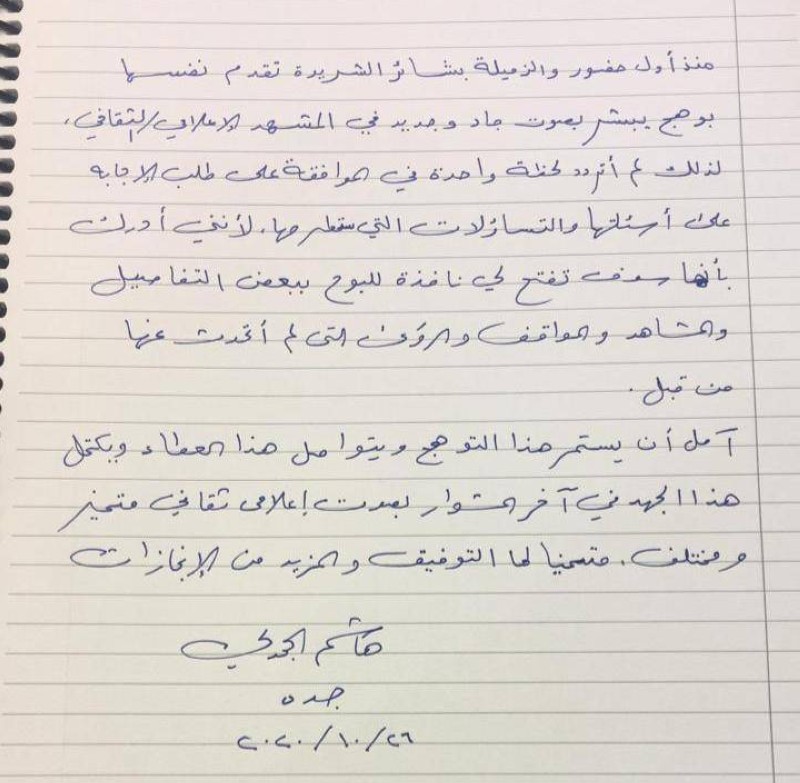 منذ أول حضور والزميلة بشائر الشريدة تقدم نفسها
بوهج يبشر بصوت جاد وجديد في المشهد الإعلامي/الثقافي،
لذلك لم أتردد لحظة واحدة في الموافقة على طلب الإجابه
على أسئلتها والتساؤلات التي ستطرحها. لأنني أدرك
بأنها سوف تفتح لي نافذة للبوح ببعض التفاصيل
والمشاهد والمواقف والرؤى التي لم أتحدث عنها
من قبل.
آمل أن يستمر هذا التوهج ويتواصل هذا العطاء ويكتمل
هذا الجهد في آخر المشوار بصوت إعلامي ثقافي متميز
ومختلف. متمنيا لها التوفيق والمزيد من الإنجازات
هاشم الجحدلي
جده
٢٠٢٠/١٠/٢٦